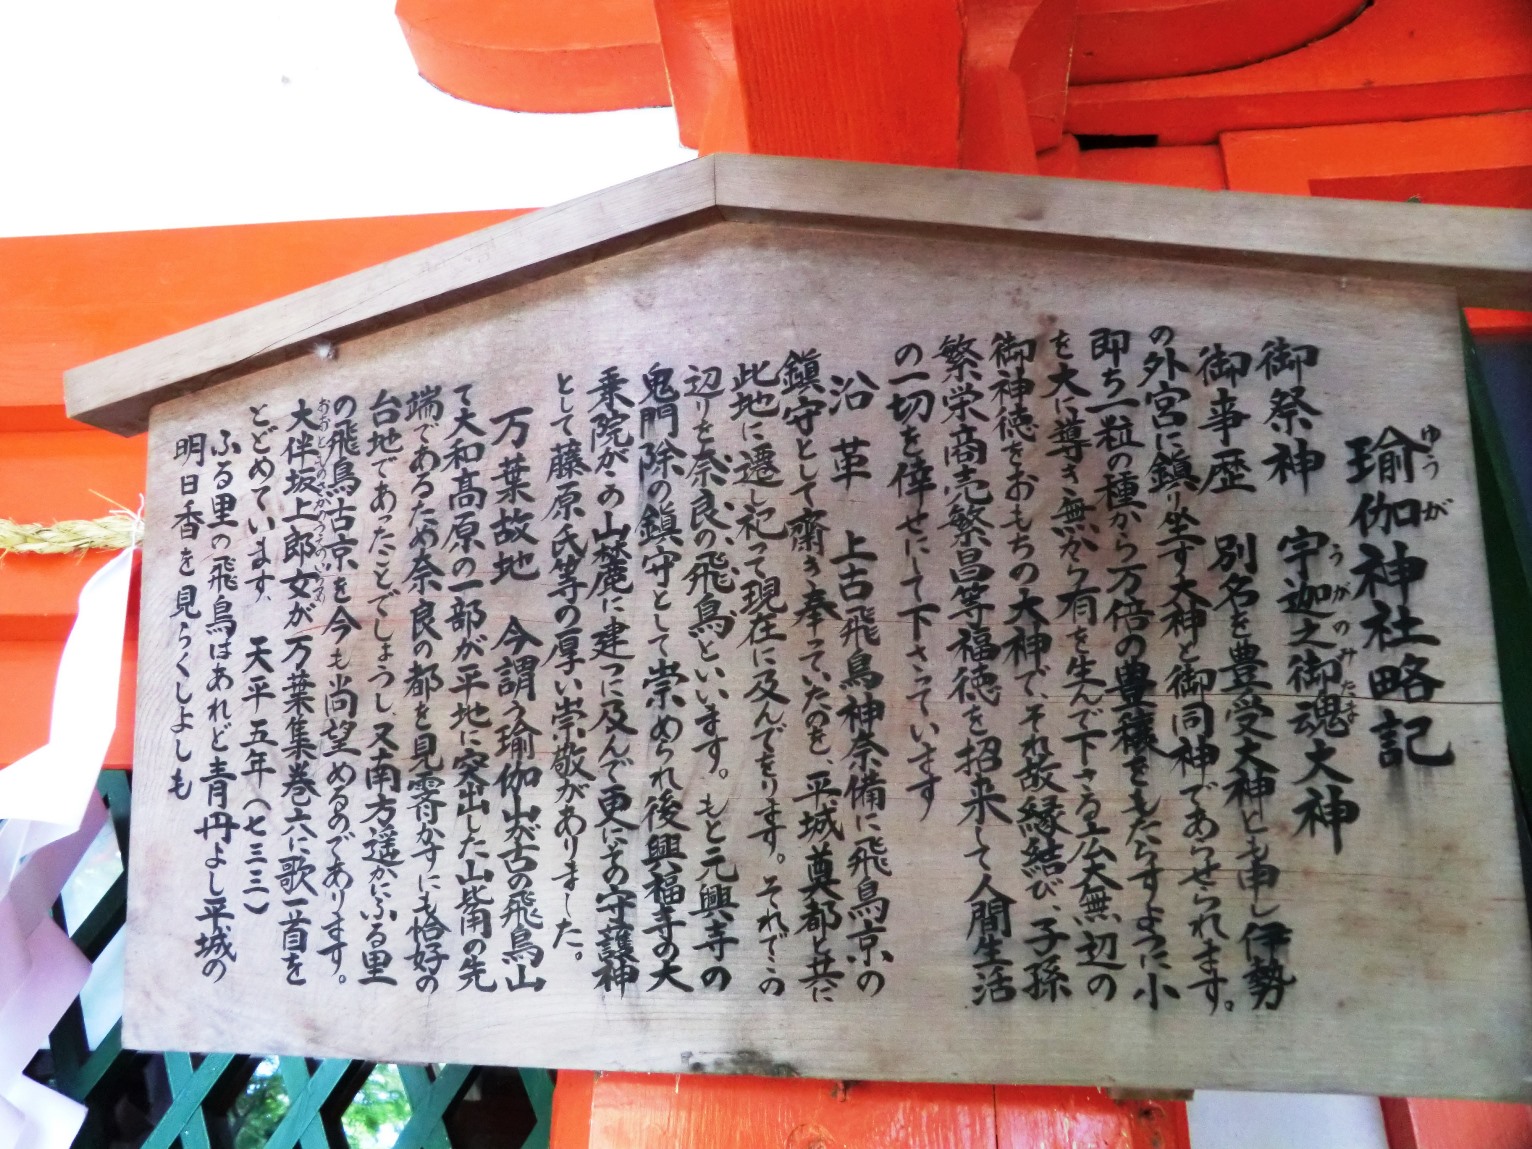 瑜伽神社略記
ゆうが
御祭神 宇迦之御魂大神
うがのみたま
御事歴 別名を豊受大神とも申し伊勢
の外宮に鎮り坐す大神と御同神であらせられます。
即ち一粒の種から万倍の豊穣をもたらすように小
を大に導き無から有を生んで下さる広大無辺の
御神徳をおもちの大神で、それ故縁結び、子孫
繁栄商売繁昌等福徳を招来して人間生活
の一切を倖せにして下さっています
沿革 上古飛鳥神奈備に飛鳥京の
鎮守として齋き奉っていたのを、平城奠都と共に
此地に遷し祀って現在に及んでをります。それでこの
辺りを奈良の飛鳥といいます。もと元興寺の
鬼門除の鎮守として崇められ後興福寺の大
乗院がの山麓に建つに及んで更にその守護神
として藤原氏等の厚い崇敬がありました。
万葉故地 今謂う瑜伽山が古の飛鳥山
て大和高原の一部が平地に突出した山背の先
端であるため奈良の都を見霽かすにも恰好の
台地であったことでしょうし、又南方遥かにふる里
の飛鳥古京を今も尚望めるのであります。
大伴坂上郎女が万葉集巻六に歌一首を
おおとものさかのうえのいらつめ
とどめています、 天平五年(七三三)
ふる里の飛鳥はあれど青丹よし平城の
明日香を見らくしよしも